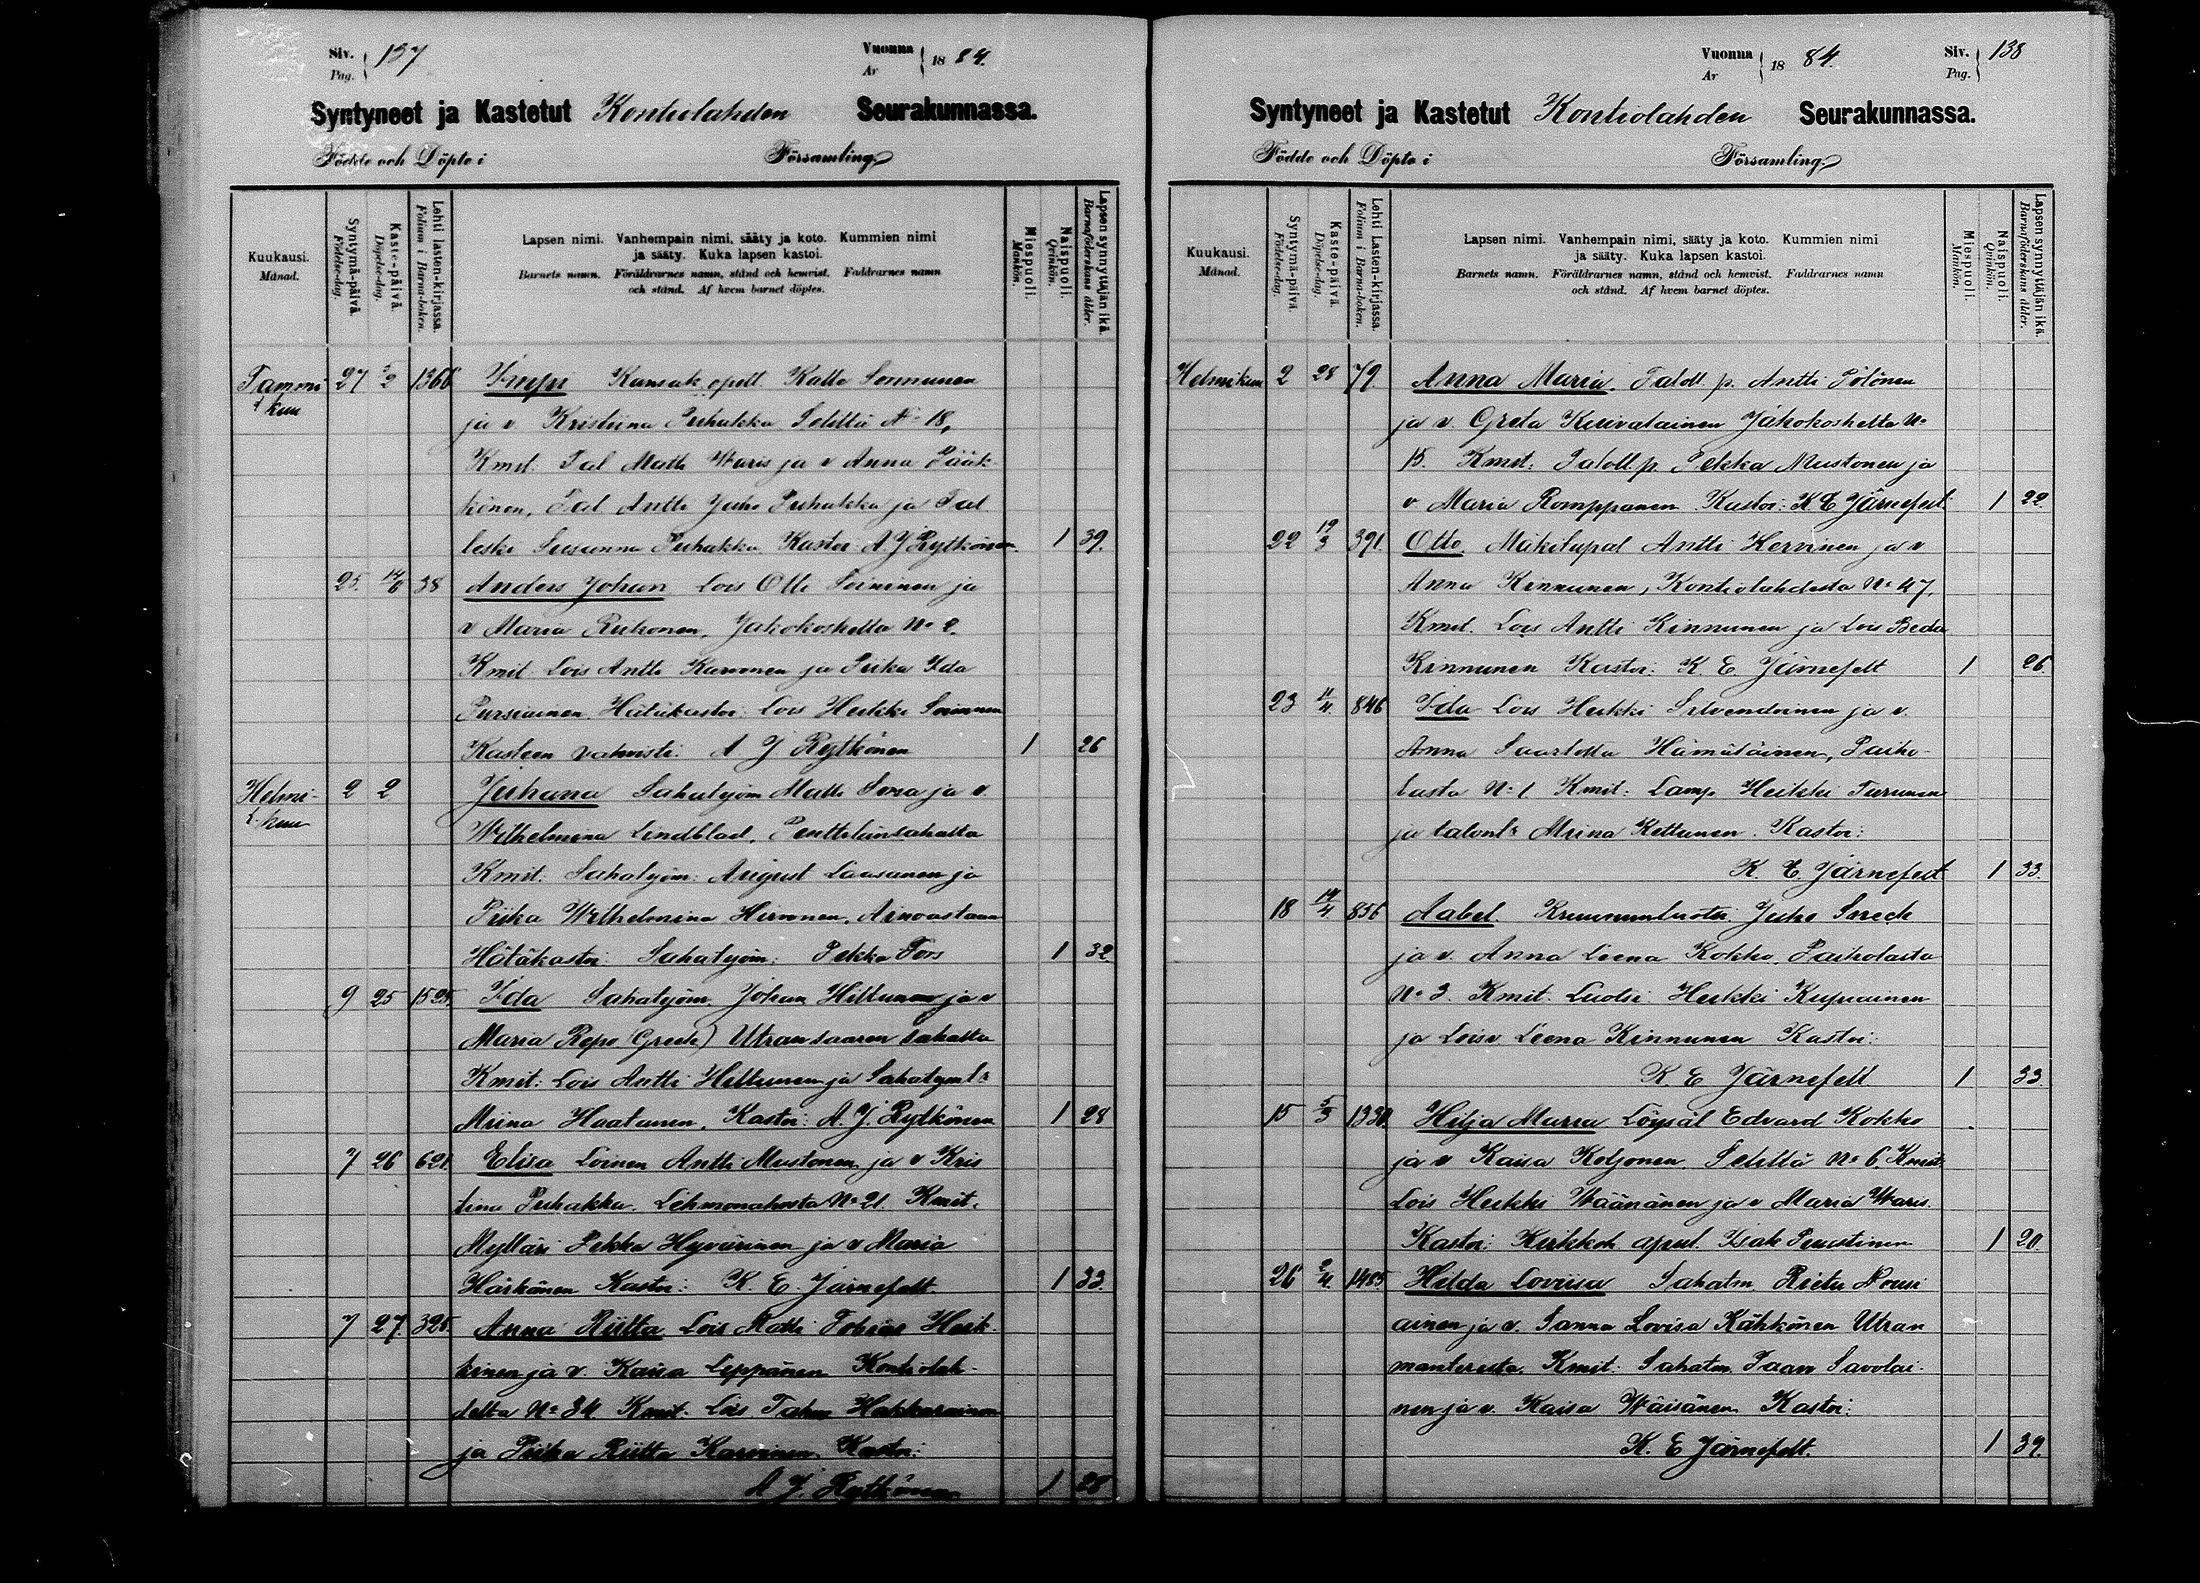 Siv. Pag. 137
Vuonna År 1884.
Syntyneet ja Kastetut Kontiolahden Seurakunnassa.
Födde och Döpte i Församling.
Kuukausi. Månad.
Syntymä-päivä. Födelse-dag.
Kaste-päivä. Döpelse-dag.
Lehti lasten-kirjassa. Folium i Barna-boken.
Lapsen nimi. Vanhempain nimi, sääty ja koto. Kummien nimi
ja sääty. Kuka lapsen kastoi.
Barnets namn. Föräldrarnes namn, stånd och hemvist. Faddrarnes namn
och stånd. Af hvem barnet döptes.
Miespuoli. Mankön.
Naispuoli. Qvinkön.
Lapsen synnyttäjän ikä. Barnaföderskans ålder.
Tammi 27 5/2 1366 Kansak. opett. Kalle Sormunen
kuu ja v Kristiina Puhakka Selillä No 18,
Kmit. Tal Matti Waris ja v Anna Pääk-
könen, Tal Antti Juho Puhakka ja Tal
leski Susanna Puhakka Kastoi A J Rytkönen. 1 39.
25. 14/6 38 Anders Johan Lois Otto Soininen ja
v Maria Reikonen, Jakokoskella No 2.
Kmit Lois Antti Karvonen ja Piika Ida
Pursiainen. Hätäkastoi: Lois Heikki Soininen
Kasteen vahvisti: A J Rytkönen 1 26
Helmi- 2 2 Juhana Sahatyöm Matti ja v
kuu Wilhelmina Lindblad, Penttilänsahasta
Kmit. Sahatyöm: August Laasanen ja
Piika Wilhelmina Hirvonen, Ainoastaan
Hätäkastoi Sahatyöm: Pekka Fors 1 32.
9 25 1525. Ida Sahatyöm Johan Hiltunen ja v
Maria Repo (Greek) Utransaaren sahalta
Kmit: Lois Antti Hiltunen ja Sahatyönt:r
Miina Haatanen. Kastoi: A. J. Rytkönen 1 28
7 26 621. Elisa Loinen Antti Mustonen ja v Kris
tina Puhakka. Lehmonaholta No 21. Kmit.
Mylläri Pekka Hyvärinen ja v Maria
Härkönen Kastoi: K. E Järnefelt 1 33.
7 27. 325. Anna Riitta Lois Matti Tobias Heik-
kinen ja v. Kaisa Leppänen Kontiolah-
della No 34 Kmit: Lois Tahvo Hakkarainen
ja Piika Riitta Karvinen Kastoi:
A J. Rytkönen 1 28
Vuonna År 1884.
Siv. Pag. 138
Syntyneet ja Kastetut Kontiolahden Seurakunnassa.
Födde och Döpte i Församling.
Kuukausi. Månad.
Syntymä-päivä. Födelse-dag.
Kaste-päivä. Döpelse-dag.
Lehti Lasten-kirjassa. Folium i Barna-boken.
Lapsen nimi. Vanhempain nimi, sääty ja koto. Kummien nimi
ja sääty. Kuka lapsen kastoi.
Barnets namn. Föräldrarnes namn, stånd och hemvist. Faddrarnes namn
och stånd. Af hvem barnet döptes.
Miespuoli. Mankön.
Naispuoli. Qvinkön.
Lapsen synnyttäjän ikä. Barnaföderskans ålder.
Helmikuu 2 28 79. Anna Maria. Taloll. p. Antti Pölönen
ja v. Greta Kuivalainen Jakokoskelta No
15. Kmit: Taloll. p. Pekka Mustonen ja
v Maria Romppanen Kastoi: K E Järnefelt 1 22.
22 19/3 391. Otto. Mäkitupal Antti Hervinen ja v
Anna Kinnunen, Kontiolahdesta No 47.
Kmit. Lois Antti Kinnunen ja Lois Beda
Kinnunen Kastoi: K. E. Järnefelt 1 26.
23 11/4. 846 Ida Lois Heikki Silvendoinen ja v.
Anna Saarlotta Hämäläinen, Paiho-
lasta No 1 Kmit: Lamp. Heikki Turunen
ja talont:r Miina Kettunen. Kastoi:
K. E. Järnefelt 1 33.
18 14/4 856 Aabel. Kruununluotsi Juho Sneck
ja v. Anna Leena Kokko, Paiholasta
No 3. Kmit: Luotsi Heikki Kupiainen
ja Lois v Leena Kinnunen Kastoi:
K. E Järnefelt 1 33
15 5/3 1330. Hilja Maria Löysäl Edvard Kokko
ja v Kaisa Kotjonen Selillä No 6. Kmit
Lois Heikki Wäänänen ja v Maria Waris.
Kastoi: Kirkkoh. apul. Isak Puustinen 1 20.
26 2/4. 1485. Hilda Lovisa Sahatm Rietu Nousi
ainen ja v. Sanna Lovisa Kähkönen Utran
manterelta. Kmit: Sahatm. Paavo Savolai-
nen ja v. Kaisa Wäisänen Kastoi:
K. E Järnefelt. 1 39.